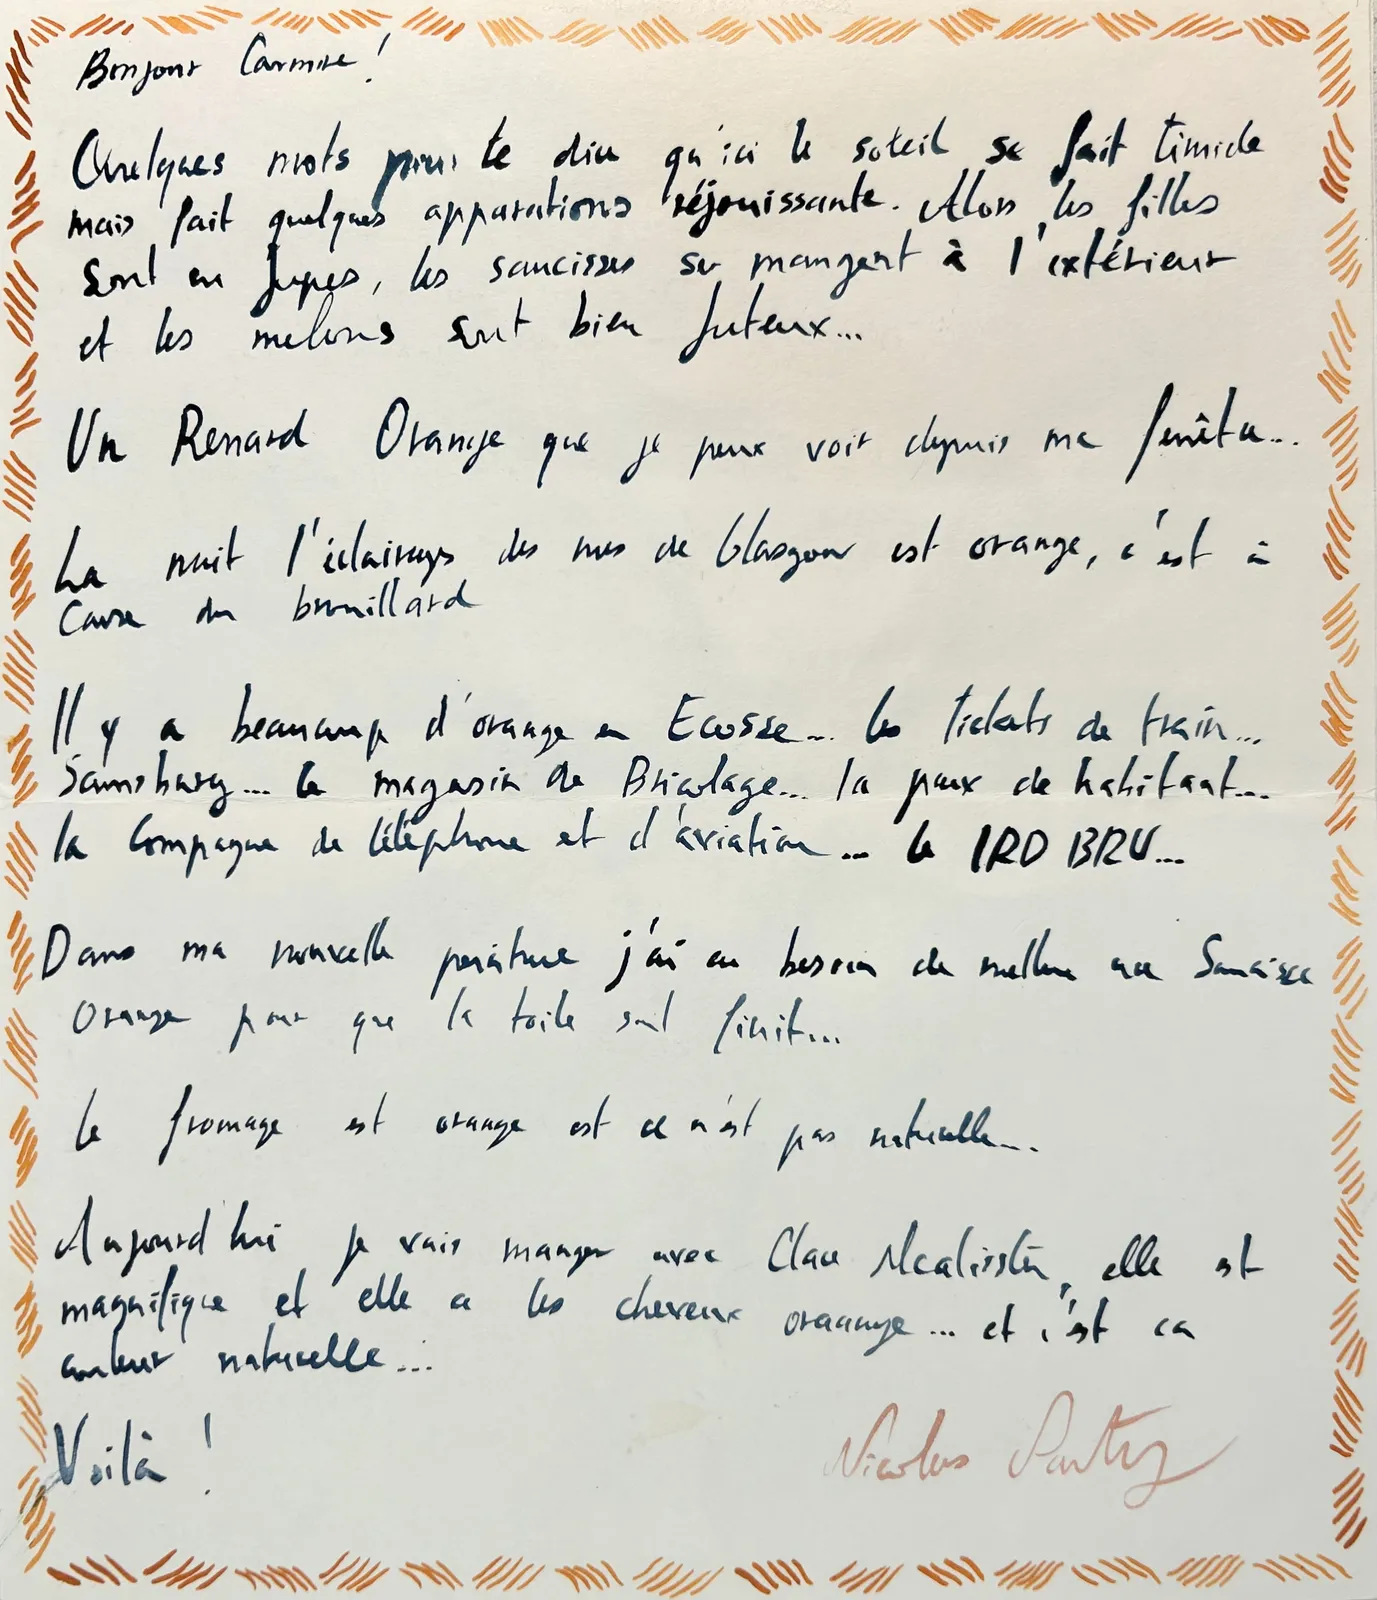 Bonjour Carmine !
Quelques mots pour te dire qu'ici le soleil se fait timide
mais fait quelques apparations réjouissante. Alors les filles
sont en jupes, les saucisses se mangent à l'extérieur
et les melons sont bien juteux...
Un Renard Orange que je peux voir depuis ma fenêtre...
La nuit l'éclairage des rues de Glasgow est orange, c'est à
cause du brouillard
Il y a beaucoup d'orange en Ecosse... les tickets de train...
Sainsbury... le magasin de Bricolage... la peaux de habitant...
la Compagne de téléphone et d'aviation... le IRD BRU...
Dans ma nouvelle peinture j'ai eu besoin de mettre une Saucisse
Orange pour que la toile soit finit...
Le fromage est orange est ce n'est pas naturelle...
Aujourd'hui je vais manger avec Clare Mcalisster, elle est
magnifique et elle a les cheveux oraange... et c'est ca
couleur naturelle...
Voilà !
Nicolas Party